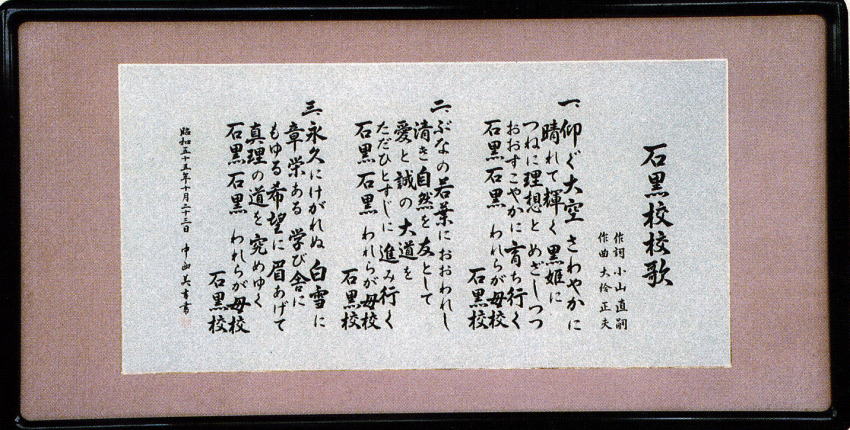 石黒校校歌
作詞 小山直嗣
作曲 大倹正夫
一、仰ぐ大空 さわやかに
晴れて輝く 黒姫に
つねに理想と めざしつつ
おおすこやかに 育ち行く
石黒 石黒 われらが母校
石黒校
二、ぶなの若葉に おおわれし
清き自然を 友として
愛と誠の 大道を
ただひとすじに 進み行く
石黒 石黒 われらが母校
石黒校
三、永久にけがれぬ 白雪に
章栄ある 学び舎に
もゆる希望に 眉あげて
真理の道を 究めゆく
石黒 石黒 われらが母校
石黒校
昭和五十五年十月二十三日 中